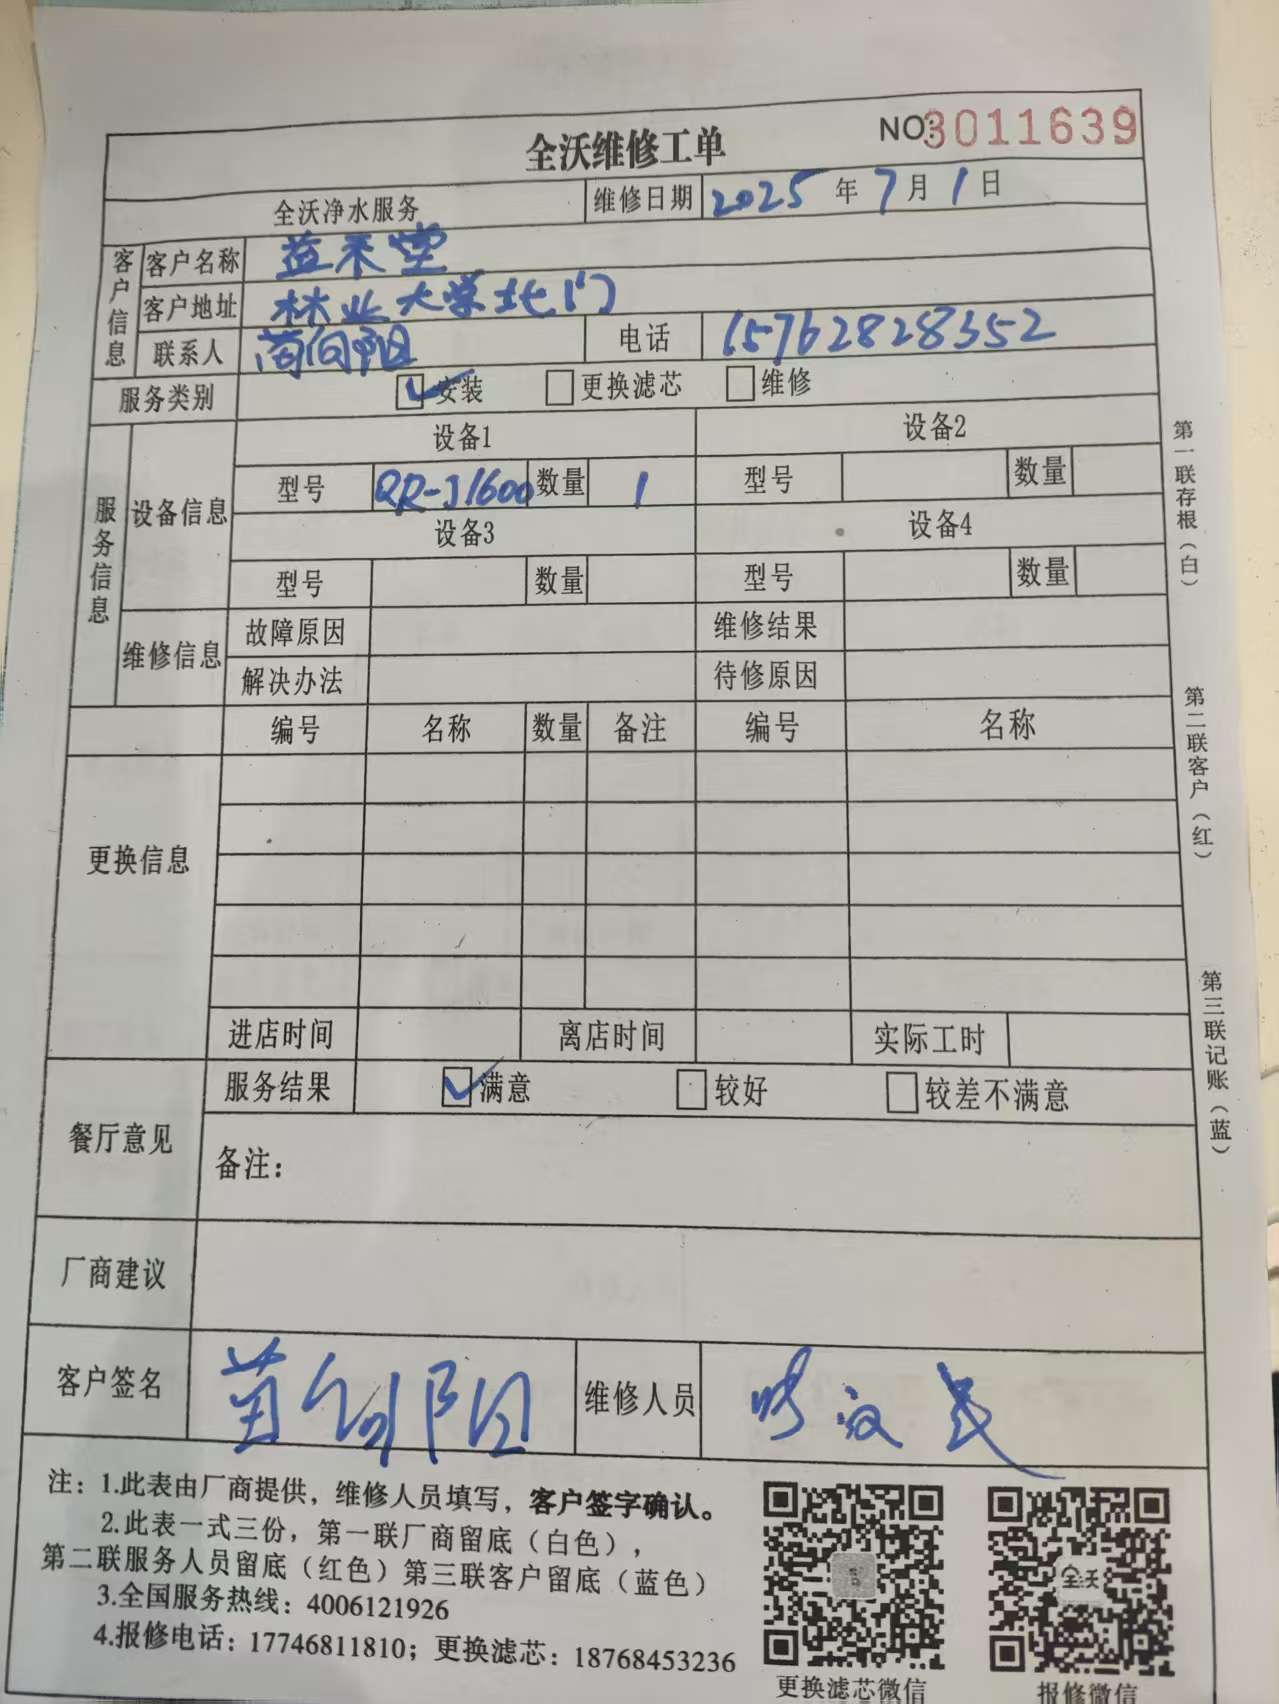 全沃维修工单 NO:3011639
全沃净水服务 维修日期 2025年7月1日
客户信息 客户名称 益禾堂
客户地址 林业大学北门
联系人 苗向阳 电话 15762828352
服务类别 安装 更换滤芯 维修
服务信息 设备信息 设备1 设备2
型号 QR-J1600 数量 1 型号 数量
设备3 设备4
型号 数量 型号 数量
维修信息 故障原因 维修结果
解决办法 待修原因
编号 名称 数量 备注 编号 名称
更换信息
进店时间 离店时间 实际工时
餐厅意见 服务结果 满意 较好 较差不满意
备注:
厂商建议
客户签名 苗向阳 维修人员
注:1.此表由厂商提供,维修人员填写,客户签字确认。
2.此表一式三份,第一联厂商留底(白色),
第二联服务人员留底(红色)第三联客户留底(蓝色)
3.全国服务热线:4006121926
4.报修电话:17746811810;更换滤芯:18768453236
全沃
更换滤芯微信 报修微信
第一联存根(白)
第二联客户(红)
第三联记账(蓝)